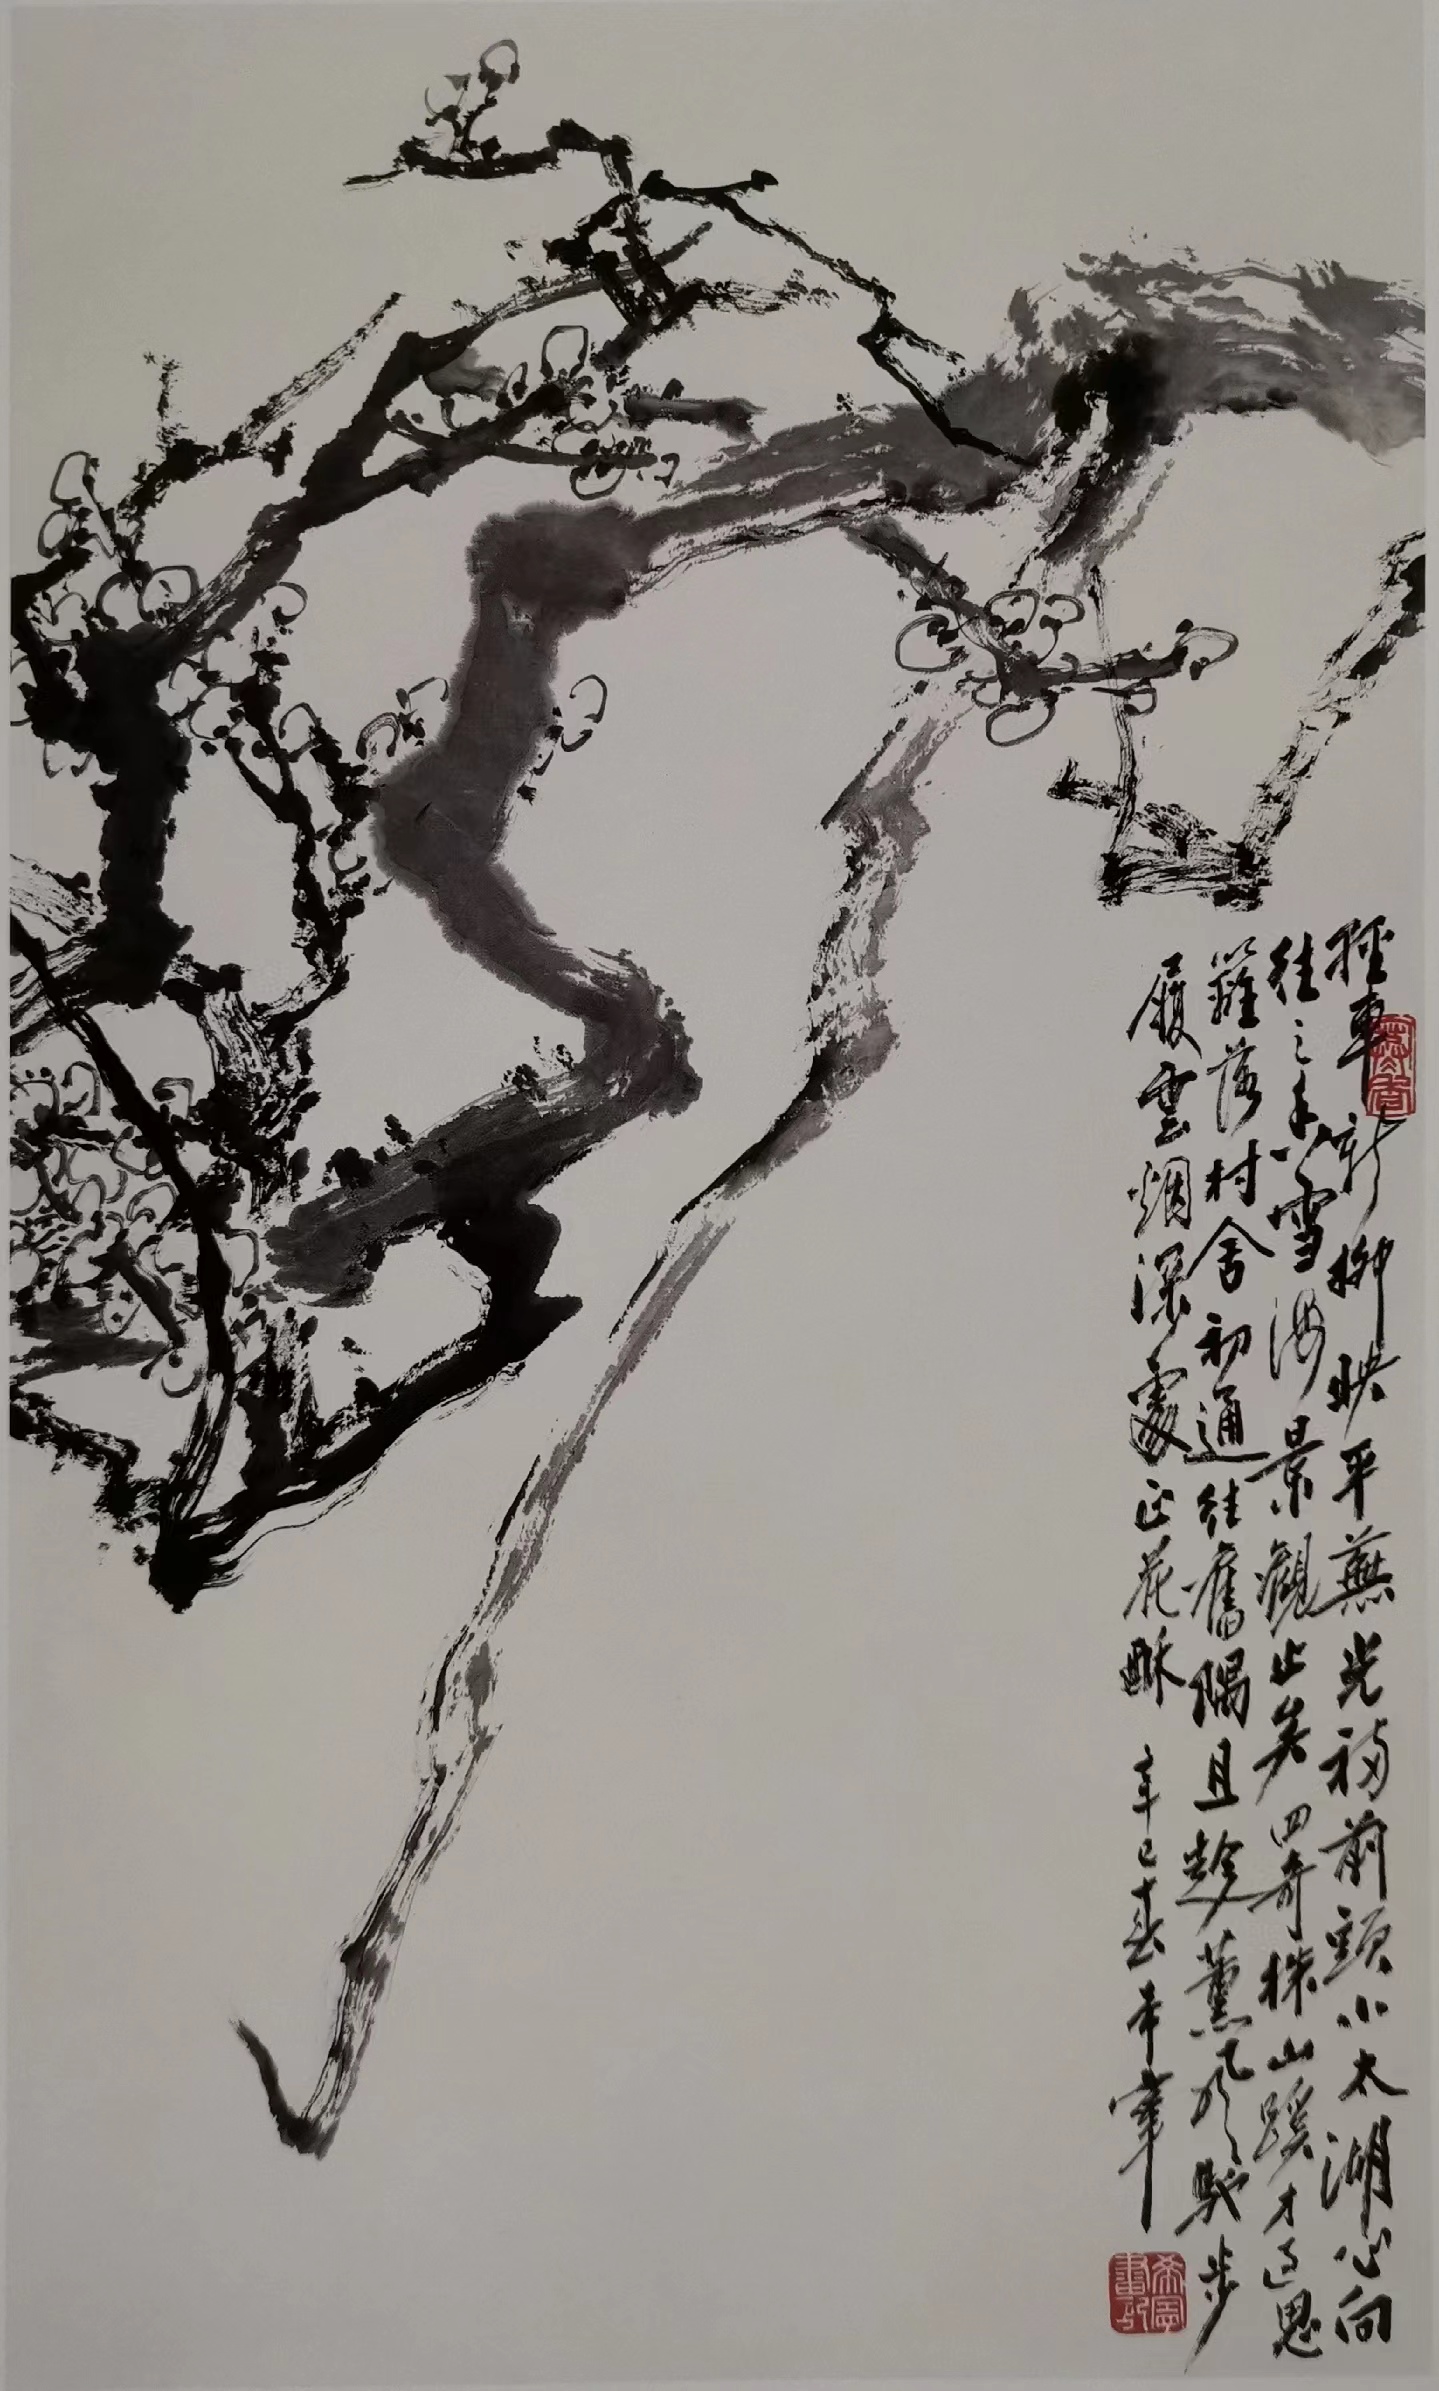 輕車新柳映平蕪光福前頭小太湖心向
往之香雪海景觀止矣四奇株山蹊才過思
籬落村舍初通往舊隅且趁薰風馳步
履雲烟深處正花酥
辛巳春希寧